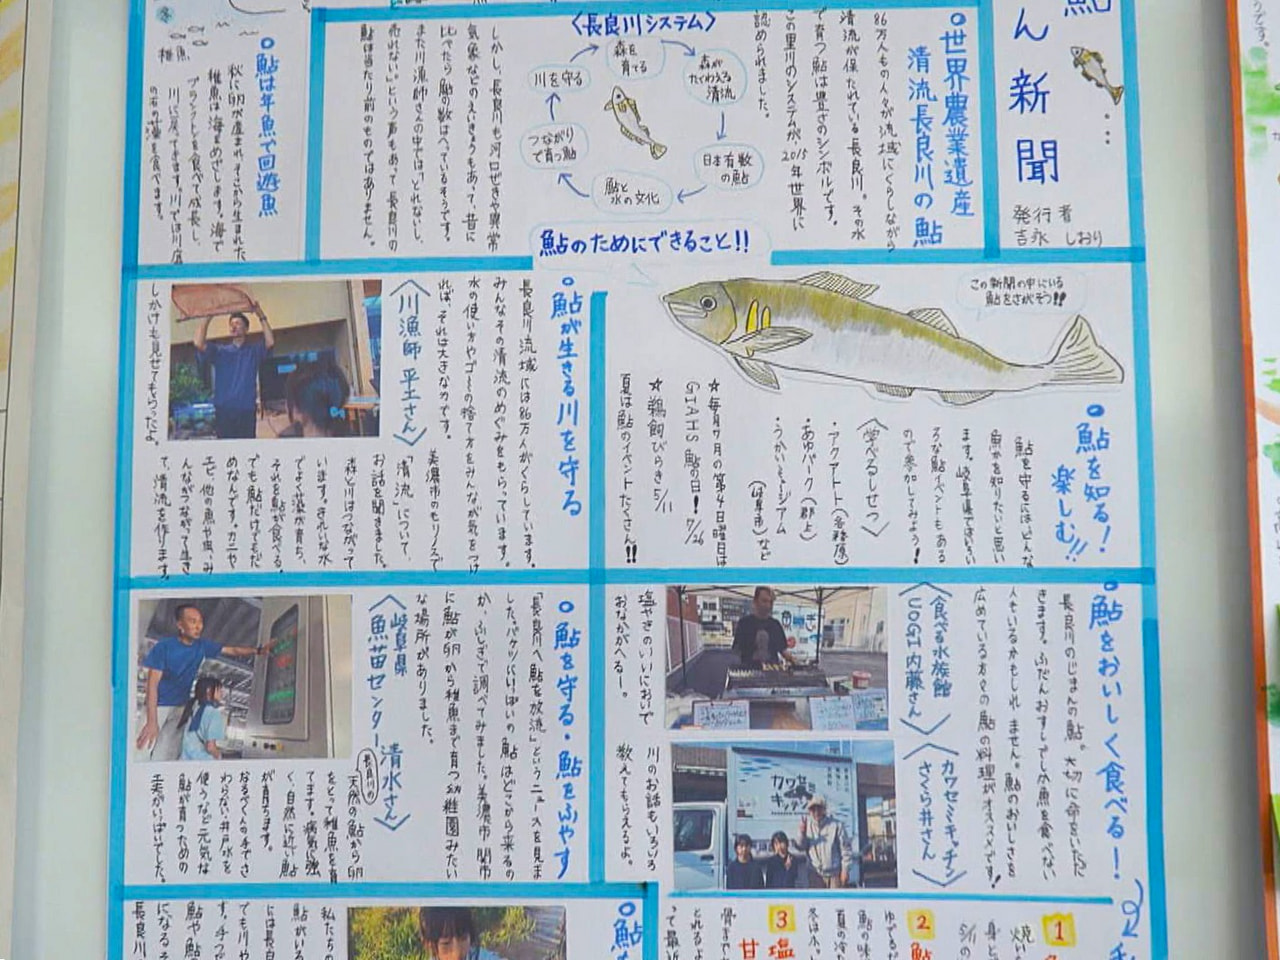 鮎
ん新聞
発行者
吉永 しおり
世界農業遺産
清流長良川の鮎
86万人もの人々が流域にくらしながら
清流が保たれている長良川。その水
で育つ鮎は豊さのシンボルです。
この里川のシステムが、2015年世界に
認められました。
〈長良川システム〉
森を
育てる
森が
たくわえる
清流
日本有数
の鮎
鮎と
水の文化
つながり
で育つ鮎
川を守る
しかし、長良川も河口ぜきや異常
気象などのえいきょうもあって、昔に
比べたら鮎の数はへっているそうです。
また川漁師さんの中では「とれないし、
売れない」という声もあって長良川の
鮎は当たり前のものではありません。
鮎は年魚で回遊魚
秋に卵が産まれ、そこから生まれた
稚魚は海をめざします。海で
プランクトンを食べて成長し、
川に戻ってきます。川では川底
の石の藻を食べます。
冬
稚魚
鮎のためにできること!!
この新聞の中にいる
鮎をさがそう!!
鮎を知る!
楽しむ!!
鮎を守るには、どんな
魚かを知りたいと思い
ます。岐阜県ではいろい
ろな鮎イベントもある
ので参加してみよう!
〈学べるしせつ〉
・アクアトト(各務原)
・あゆパーク(郡上)
・うかいミュージアム
(岐阜市)など
★毎月7月の第4日曜日は
GIAHS鮎の日! 7/26
★鵜飼びらき 5/11
夏は鮎のイベントたくさん!!
鮎が生きる川を守る
長良川流域には86万人がくらしています。
みんなその清流のめぐみをもらっています。
水の使い方やゴミの捨て方をみんなが気をつけ
れば、それは大きな力です。
〈川漁師 平工さん〉
美濃市のモリノスで
「清流」について、
お話を聞きました。
森と川はつながって
います。きれいな水
でよく藻が育ち、
それを鮎が食べる。
でも鮎だけでもだ
めなんです。カニや
エビ、他の魚や虫、み
んながつながって生き
て、清流を作ります。
しかけも見せてもらったよ。
鮎をおいしく食べる!
長良川のじまんの鮎。大切に命をいただ
きます。ふだんおすしでしか魚を食べない
人もいるかもしれません。鮎のおいしさを
広めている方々の鮎の料理がオススメです!
〈食べる水族館
UOGI内藤さん〉
〈カワセミキッチン
さくら井さん〉
塩やきのいいにおいで
おなかがへるー。
川のお話もいろいろ
教えてもらえるよ。
カワセミ
キッチン
鮎を守る・鮎をふやす
「長良川へ鮎を放流」というニュースを見ま
した。バケツにいっぱいの鮎はどこから来るの
か、ふしぎで調べてみました。美濃市、関市
に鮎が卵から稚魚まで育つ幼稚園みたい
な場所がありました。
〈岐阜県
魚苗センター 清水さん〉
長良川の
天然の鮎から卵
をとって稚魚を育
てます。病気に強
く、自然に近い鮎
が育ちます。
なるべく人の手でさ
わらない、井戸水を
使うなど元気な
鮎が育つための
工夫がいっぱいでした。
1
2
3
焼い
身と
5/11
鮎
ゆでるだ
鮎の味
夏の冷た
塩
甘
骨まで
とれるよ
って最近
鮎
私たちの
鮎がいる
には長良
ても川や
す。手つで
鮎や鮎
になるそ
長良川